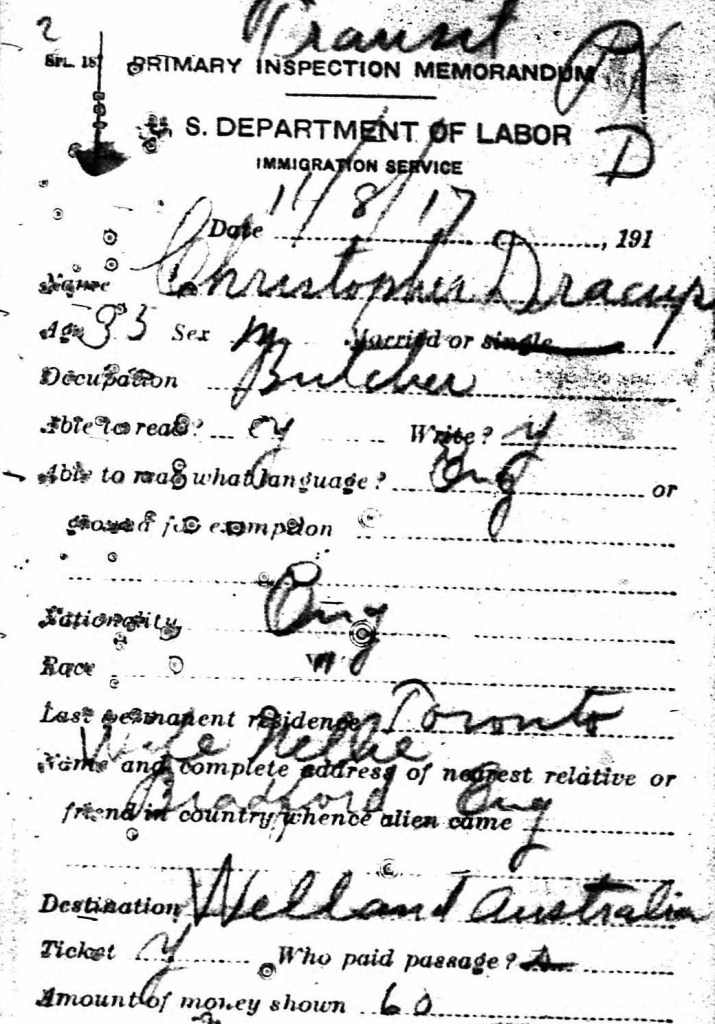 2 Transit PX
SPL. 187 PRIMARY INSPECTION MEMORANDUM
U. S. DEPARTMENT OF LABOR D
IMMIGRATION SERVICE
Date 11/8/17, 191
Name Christopher Dracup
Age 35 Sex m Married or single
Occupation Butcher
Able to read? y Write? y
Able to read what language? Eng or
ground for exemption
Nationality Eng
Race
Last permanent residence Toronto
Wife Nellie
Name and complete address of nearest relative or
Bradford Eng
friend in country whence alien came
Destination Welland Australia
Ticket y Who paid passage?
Amount of money shown 60